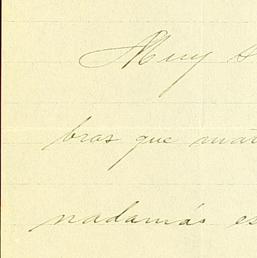 Muy
bras que
nadamás es